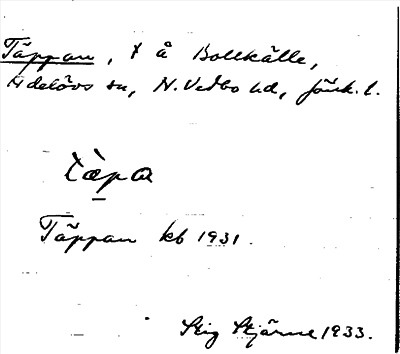 Täppan, t å Bollkälle,
Adelövs sn, N. Vedbo hd, Jönk. l.
tæ̀pa
Täppan kb 1931.
Stig Stjärne 1933.